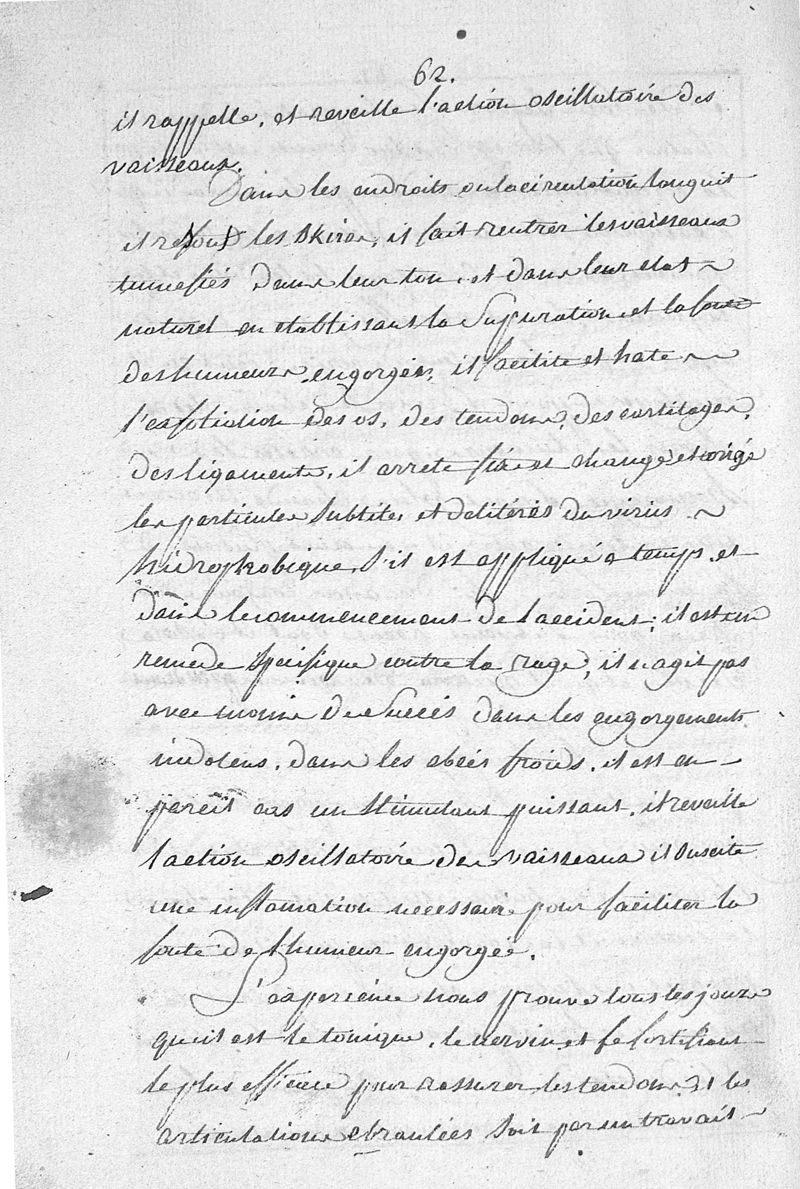 62.
il rappelle, et reveille l'action oscillatoire des
vaisseaux.
Dans les endroits ou la circulation languit
il resout les skires, il fait rentrer les vaisseaux
tumefiés dans leur ton, et dans leur etat
naturel en etablissant la Supuration et la fonte
des humeurs engorgées, il facilite et hate
l'exfoliation des os, des tendons, des cartilages,
des ligaments, il arrete fixe et change et corrige
les particules subtiles, et deliteres du virus
hidrophobique, s'il est appliqué a temps, et
dans le commencement de l'accident; il est un
remede specifique contre la rage, il n'agit pas
avec moins de Succès dans les engorgements
indolens, dans les abcés froids, il est en
pareil cas un stimulant puissant, il reveille
l'action oscillatoire des vaisseaux il suscite
une inflamation necessaire pour faciliter la
fonte de l'humeur engorgée.
L'experience nous prouve tous les jours
qu'il est le tonique, le nervin et le fortifiant
le plus efficace pour rassurer les tendons et les
articulations ebranlées soit par un travail